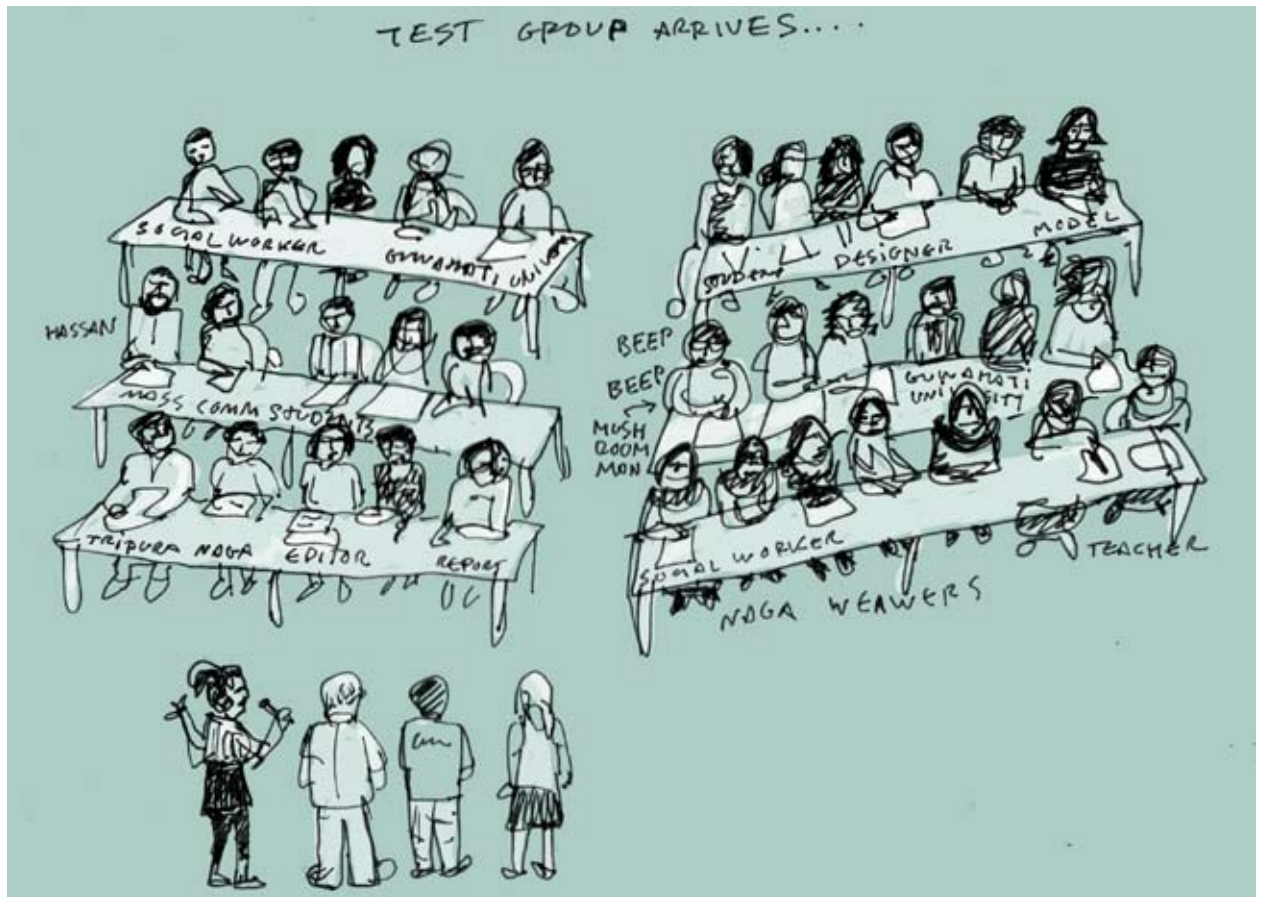 TEST GROUP ARRIVES....
SOCIAL WORKER
GUWAHATI UNIVERS
HASSAN
MASS COMM STUDENTS
TRIPURA NAGA
EDITOR
REPORT
STUDENT
DESIGNER
MODEL
BEEP
BEEP
MUSH
ROOM
MAN
GUWAHATI
UNIVERSITY
SOCIAL WORKER
TEACHER
NAGA WEAWERS